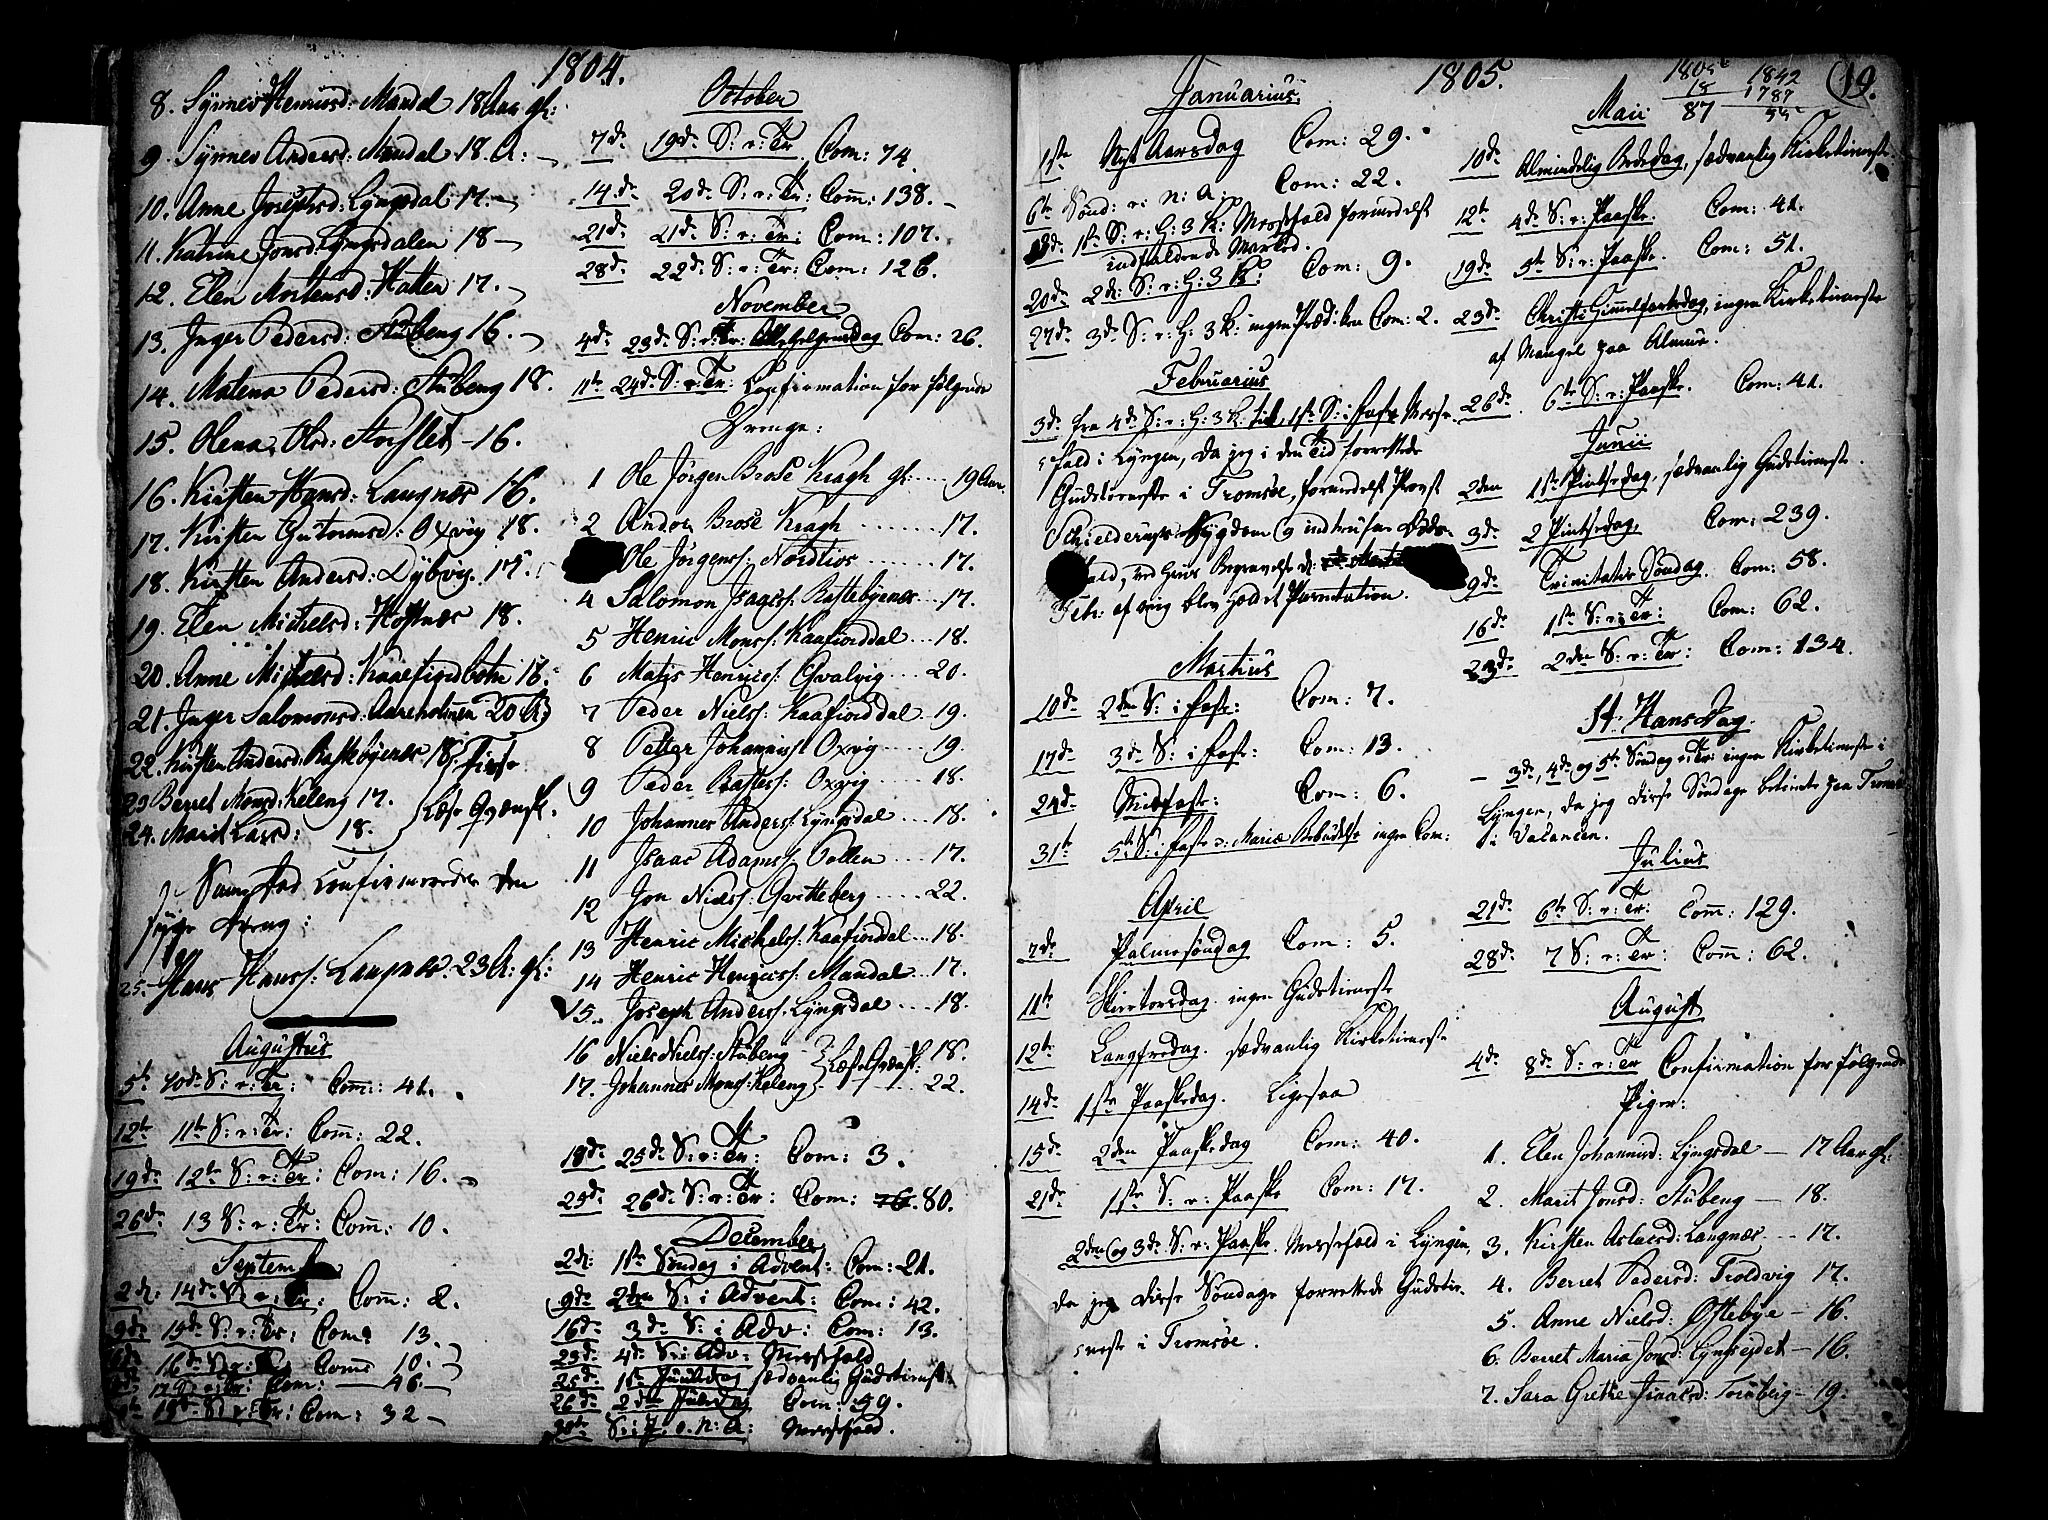 1804.
8. Synnev Henricsd: Mandal 18 Aar gl:
9. Synnev Andersd: Mandal 18. A:
10. Anne Josephsd: Lyngsdal 17.
11. Katrine Jonsd: Lyngsdalen 18
12. Elen Mortensd: Hatten 17.
13. Inger Pedersd: Stubeng 16.
14. Malena Pedersd: Stubeng 18.
15. Olena Olsd: Storslet 16.
16. Kirsten Hansd: Langnæs 16.
17. Kirsten Gutormsd: Oxvig 18.
18. Kirsten Andersd: Dybvig. 17.
19. Elen Michelsd: Koppnæs 18.
20. Anne Michelsd: Kaaefiordboten 18.
21. Inger Salomonsd: Aareholmen 20 A:
22. Kirsten Andersd: 18.
23 Berret Monsd: Keleng 17.
24. Marit Larsd: 18.
Læse Qvænsk.
Samme Tid Confirmeredes den
syge Dreng:
25. Hans Hanss: Langnæs. 23 A: gl:
Augustus
5te 10de S: e: Tr: Com: 41.
12te 11te S: e: Tr: Com: 22.
19de 12te S: e: Tr: Com: 16.
26de 13 S: e: Tr: Com: 10.
Septemb
2de: 14de S: e: Tr: Com: 2.
9de 15de S: e: Tr: Com: 13.
16de S: e: Tr: Com: 10.
17de S: e: Tr: Com: 46.
18de S: e: Tr: Com: 32
October
7de 19de S: e: Tr Com: 74.
14de 20de S: e: Tr: Com: 138.
21de 21de S: e: Tr: Com: 107.
28de 22de S: e: Tr: Com: 126.
November
4de 23de S: e: Tr: Allehelgensdag Com: 26.
11te 24de S: e: Tr: Confirmation for følgende
Drenge:
1 Ole Jørgen Brose Kragh gl: 19 Aar.
2 Andor Brose Kragh 17.
Ole Jørgenss: Nordtios 17.
4 Salomon Isacss: Rattebynes 17.
5 Henric Monss: Kaafiorddal 18.
6 Matis Henricss: Qvalvig 20.
7 Peder Nielss: Kaafiorddal 19.
8 Petter Johanniss: Oxvig 19.
9 Peder Battess: Oxvig 18.
10 Johannes Anderss: Lyngsdal 18.
11 Isaac Adamss: Pollen 17.
12 Jon Nielss: Qvitteberg 22.
13 Henric Michelss: Kaafiorddal 18.
14 Henric Henricss: Mandal 17.
15. Joseph Anderss: Lyngsdal 18.
16 Niels Nielss: Stubeng Læse Qvænsk: 18.
17. Johannes Monss: Keleng 22.
18de 25de S: e: Tr: Com: 3.
25de 26de S: e: Tr: Com: 76. 80.
December
2de: 1ste Søndag i Advent: Com: 21.
9de 2den S: i Advent: Com: 42.
16de 3de S: i Adv: Com: 13.
23de 4de S: i Adv: Messefald
25de 1ste Juuldag sædvanlig Gudstieneste
26de 2den Juledag Com: 59.
30te S: i J. o. N: A: Messefald.
1805.
19.
1805
18
87
1842
1787
55
Januarius.
1ste Nyt Aarsdag Com: 29.
6te Sønd: e: n: a: Com: 22.
13de 1ste S: e: H: 3 K: Messefald formedelst
indfaldende Marked.
20de 2de: S: e: H: 3 K: Com: 9.
27de 3de S: e: H: 3 K: ingen Prædiken Com: 2.
Februarius
3de fra 4de S: e: H: 3 K. til 1ste S: i Faste Messe-
fald i Lyngen, da jeg i den Tid forrettede
Gudstieneste i Tromsøe, formedelst Provst
Schielderups Sygdom og indtrufne Døds-
fald, ved hvis Begravelse d:
Febr: af mig blev holdet Parentation.
Martius
10de 2den S: i Faste: Com: 7.
17de 3de S: i Faste: Com: 13.
24de Midfaste: Com: 6.
31te 5te S: i Faste e: Mariæ Bebudelse ingen Com:
April
7de Palmesøndag Com: 5.
11te Skiertorsdag. ingen Gudstieneste
12te Langfredag. sædvanlig Kirketieneste
14de 1ste Paaskedag. Ligesaa
15de 2den Paaskedag Com: 40.
21de 1ste S: e: Paaske Com: 17.
2den og 3de S: e: Paaske. Messefald i Lyngen,
da jeg disse Søndage forrettede Gudstie-
neste i Tromsøe.
Maii
10de Almindelig Bededag, sædvanlig Kirketieneste.
12te 4de S: e: Paaske: Com: 41.
19de 5te S: e: Paaske. Com: 51.
23de Christi Himmelfartsdag, ingen Kirketieneste
af Mangel paa Almue.
26de 6te S: e: Paaske. Com: 41.
Junii
2den 1ste Pintsedag, sædvanlig Gudstieneste.
3de 2 Pintsedag, Com: 239.
9de Trinitatis Søndag. Com: 58.
16de 1ste S: e: Tr: Com: 62.
23de 2den S: e: Tr: Com: 134.
St: Hans Dag.
3de, 4de og 5te Søndag e: Tr: ingen Kirketieneste i
Lyngen, da jeg disse Søndage betiente paa Tromsø
i Vacancen.
Julius
21de 6te S: e: Tr: Com: 129.
28de 7 S: e: Tr: Com: 62.
August
4de 8de S: e: Tr Confirmation for følgende
Piger:
1. Elen Johannisd: Lyngsdal 17 Aar gl:
2. Marit Jonsd: Stubeng 18.
3. Kirsten Aslacsd: Langnæs 17.
4. Berret Pedersd: Troldvig 17.
5. Anne Nielsd: Ostebye 16.
6. Berret Maria Jonsd: Lyngseydet 16.
7. Sara Grethe Isaacsd: 19.